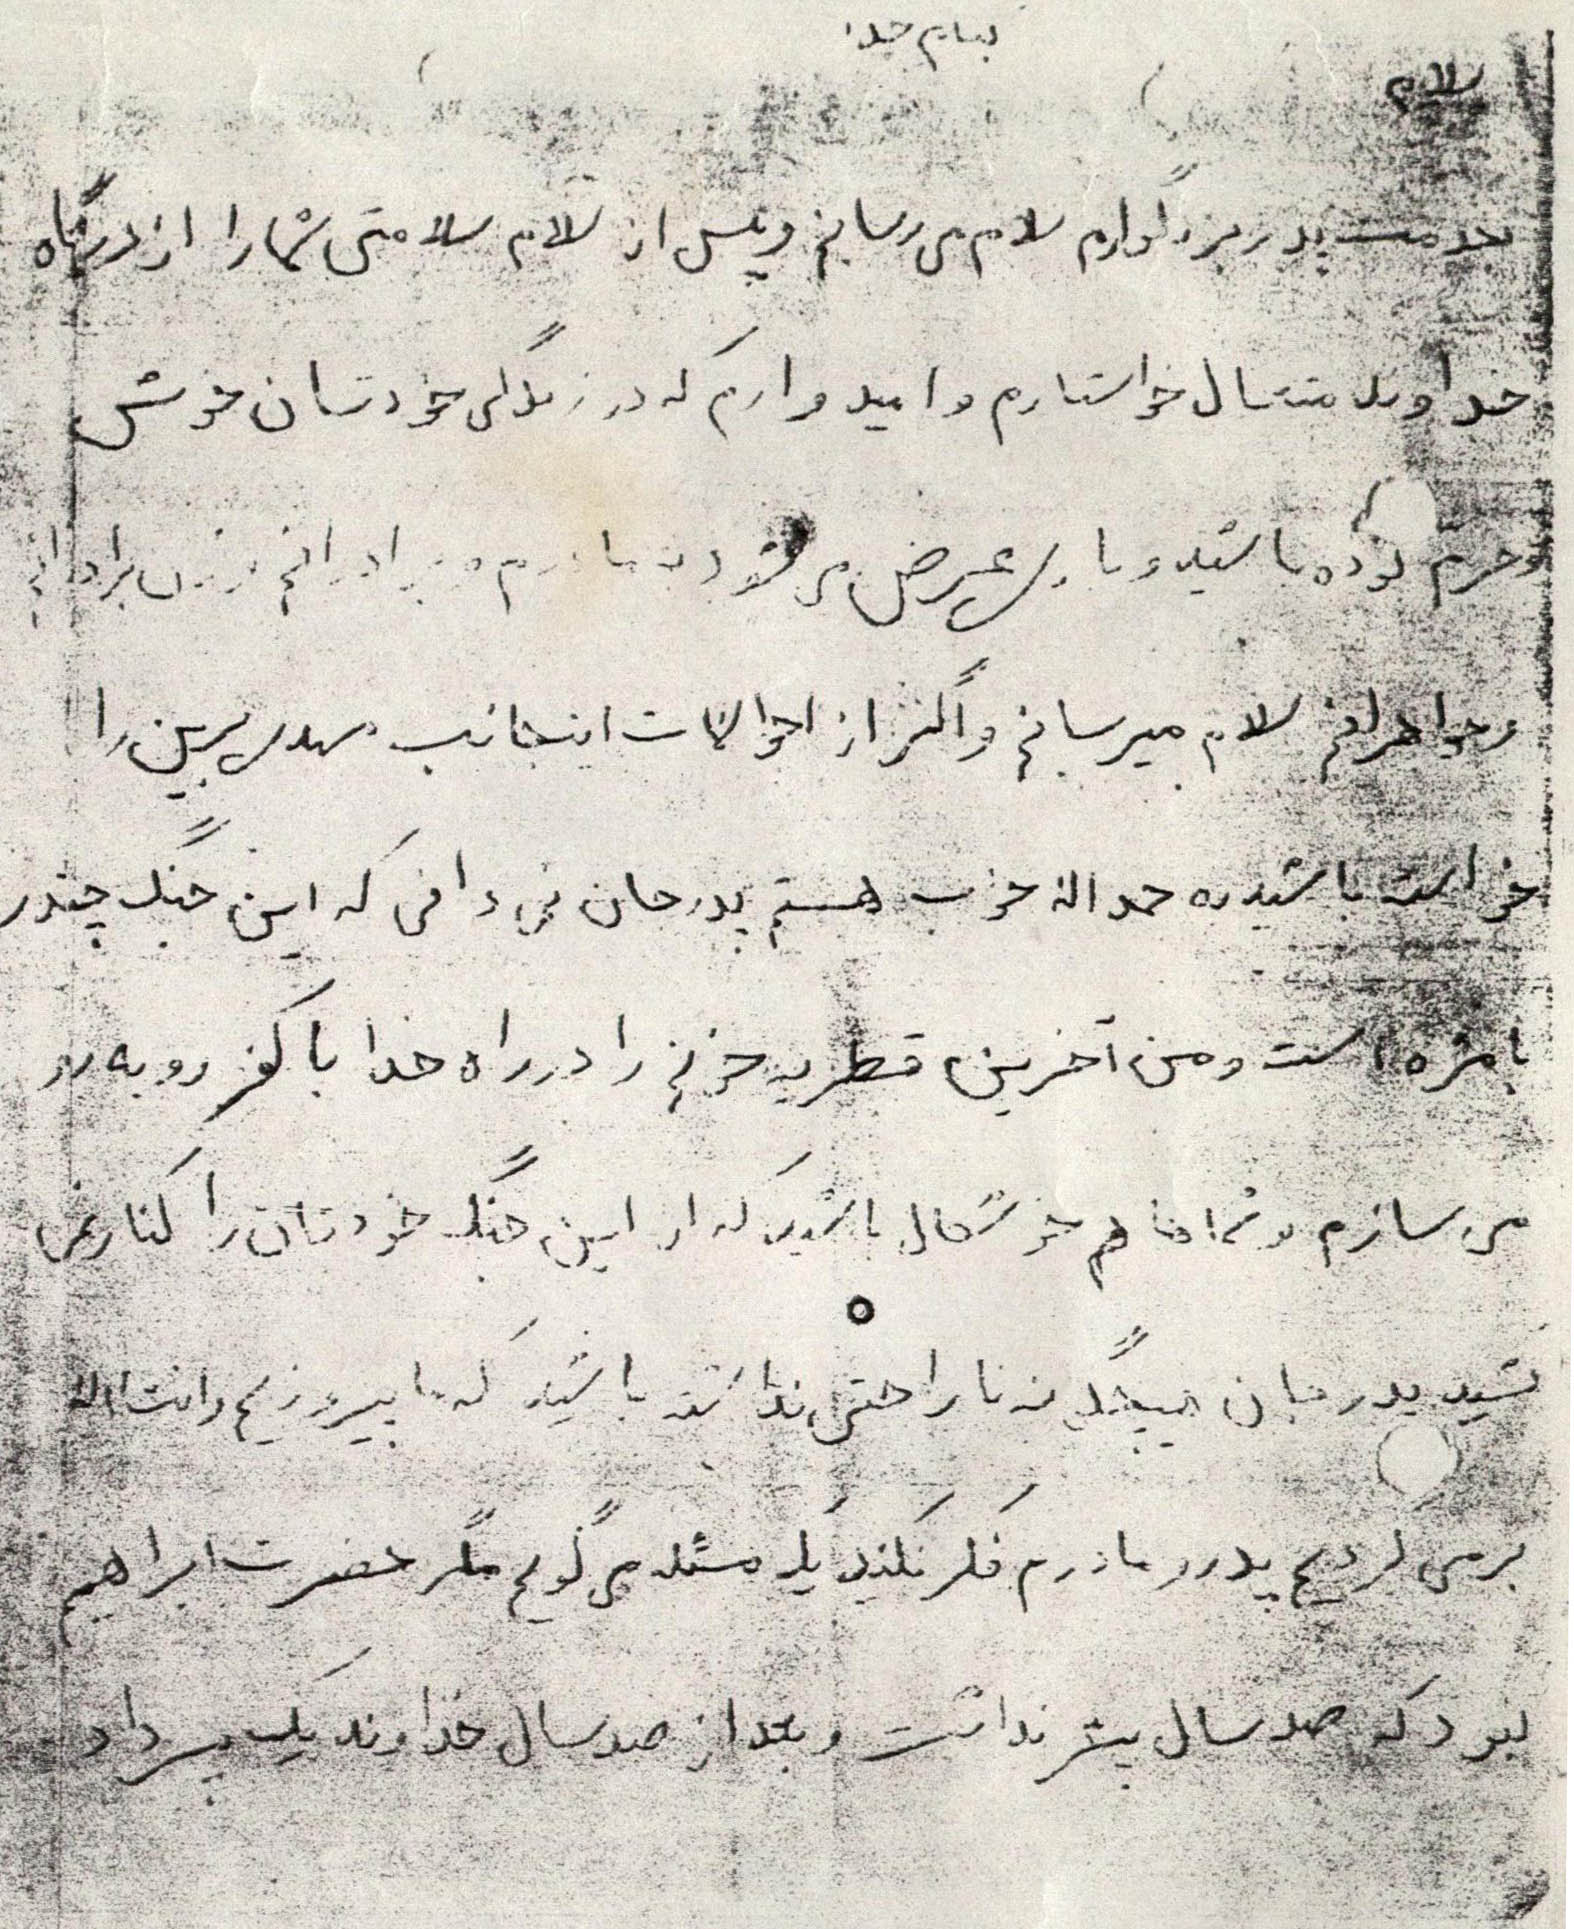 بنام خدا
سلام
بخدمت پدر بزرگوارم سلام می رسانم و پس از سلام سلامتی شما را از درگاه
خداوند متعال خواستارم و امیدوارم که در زندگی خودتان خوش
وخرم بوده باشید و با عرض می شود به مادرم و برادرانم و زن برادرانم
وخواهرانم سلام میرسانم و اگر از احوالات اینجانب مهدی را
خواسته باشید حمد اله خوب هستم پدر جان نمی دانی که این جنگ چقدر
بامزه است و من آخرین قطره خونم را در راه خدا با کفر روبه رو
می سازم و شماها هم خوشحال باشید که از این جنگ خودتان را کنار نمی
کشید پدر جان هیچگونه ناراحتی نداشته باشید که ما پیروزیم وانشااله
برمی گردیم پدر و مادرم فکر نکنید یک مسئله می گویم مگر حضرت ابراهیم
نبود که صد سال پسر نداشت و بعد از صد سال خداوند یک پسر داد